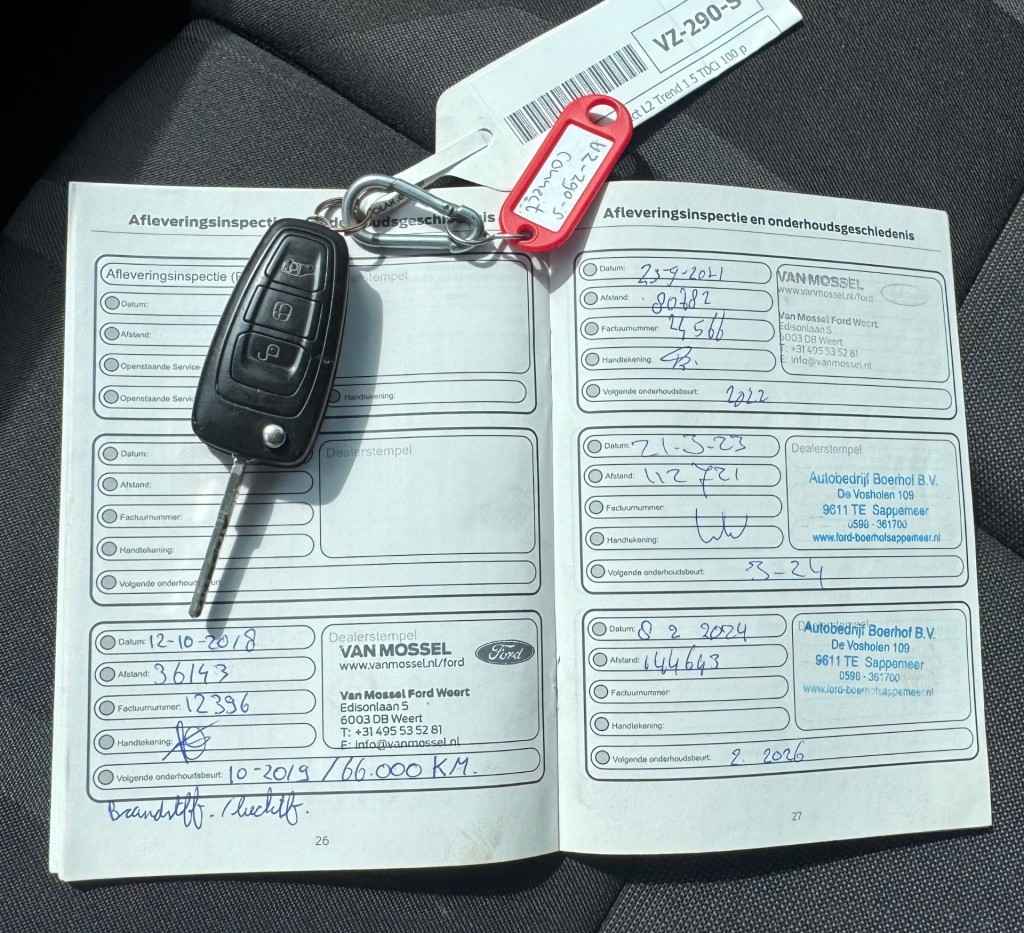 VZ-290-S
ct L2 Trend 1.5 TDCi 100 p
VZ-290-S
Connect
Afleveringsinspectie
onderhoudsgeschiedenis
Afleveringsinspectie
Datum:
Afstand:
Openstaande Service-
Openstaande
Handtekening:
Datum:
Afstand:
Factuurnummer:
Handtekening:
Volgende onderhoudsbeurt:
Dealerstempel
Datum: 12-10-2018
Afstand: 36143
Factuurnummer: 12396
Handtekening:
Volgende onderhoudsbeurt: 10-2019 / 66.000 KM.
Dealerstempel
VAN MOSSEL
www.vanmossel.nl/ford
Ford
Van Mossel Ford Weert
Edisonlaan 5
6003 DB Weert
T: +31 495 53 52 81
E: Info@vanmossel.nl
26
Afleveringsinspectie en onderhoudsgeschiedenis
Datum: 23-9-2021
Afstand: 80782
Factuurnummer: 24566
Handtekening:
Volgende onderhoudsbeurt: 2022
VAN MOSSEL
www.vanmossel.nl/ford
Van Mossel Ford Weert
Edisonlaan 5
6003 DB Weert
T: +31 495 53 52 81
E: Info@vanmossel.nl
Datum: 21-3-23
Afstand: 112721
Factuurnummer:
Handtekening:
Volgende onderhoudsbeurt: 3-24
Dealerstempel
Autobedrijf Boerhof B.V.
De Vosholen 109
9611 TE Sappemeer
0598 - 361700
www.ford-boerhofsappemeer.nl
Datum: 8 2 2024
Afstand: 144643
Factuurnummer:
Handtekening:
Volgende onderhoudsbeurt: 2. 2026
Autobedrijf Boerhof B.V.
De Vosholen 109
9611 TE Sappemeer
0598 - 361700
www.ford-boerhofsappemeer.nl
27